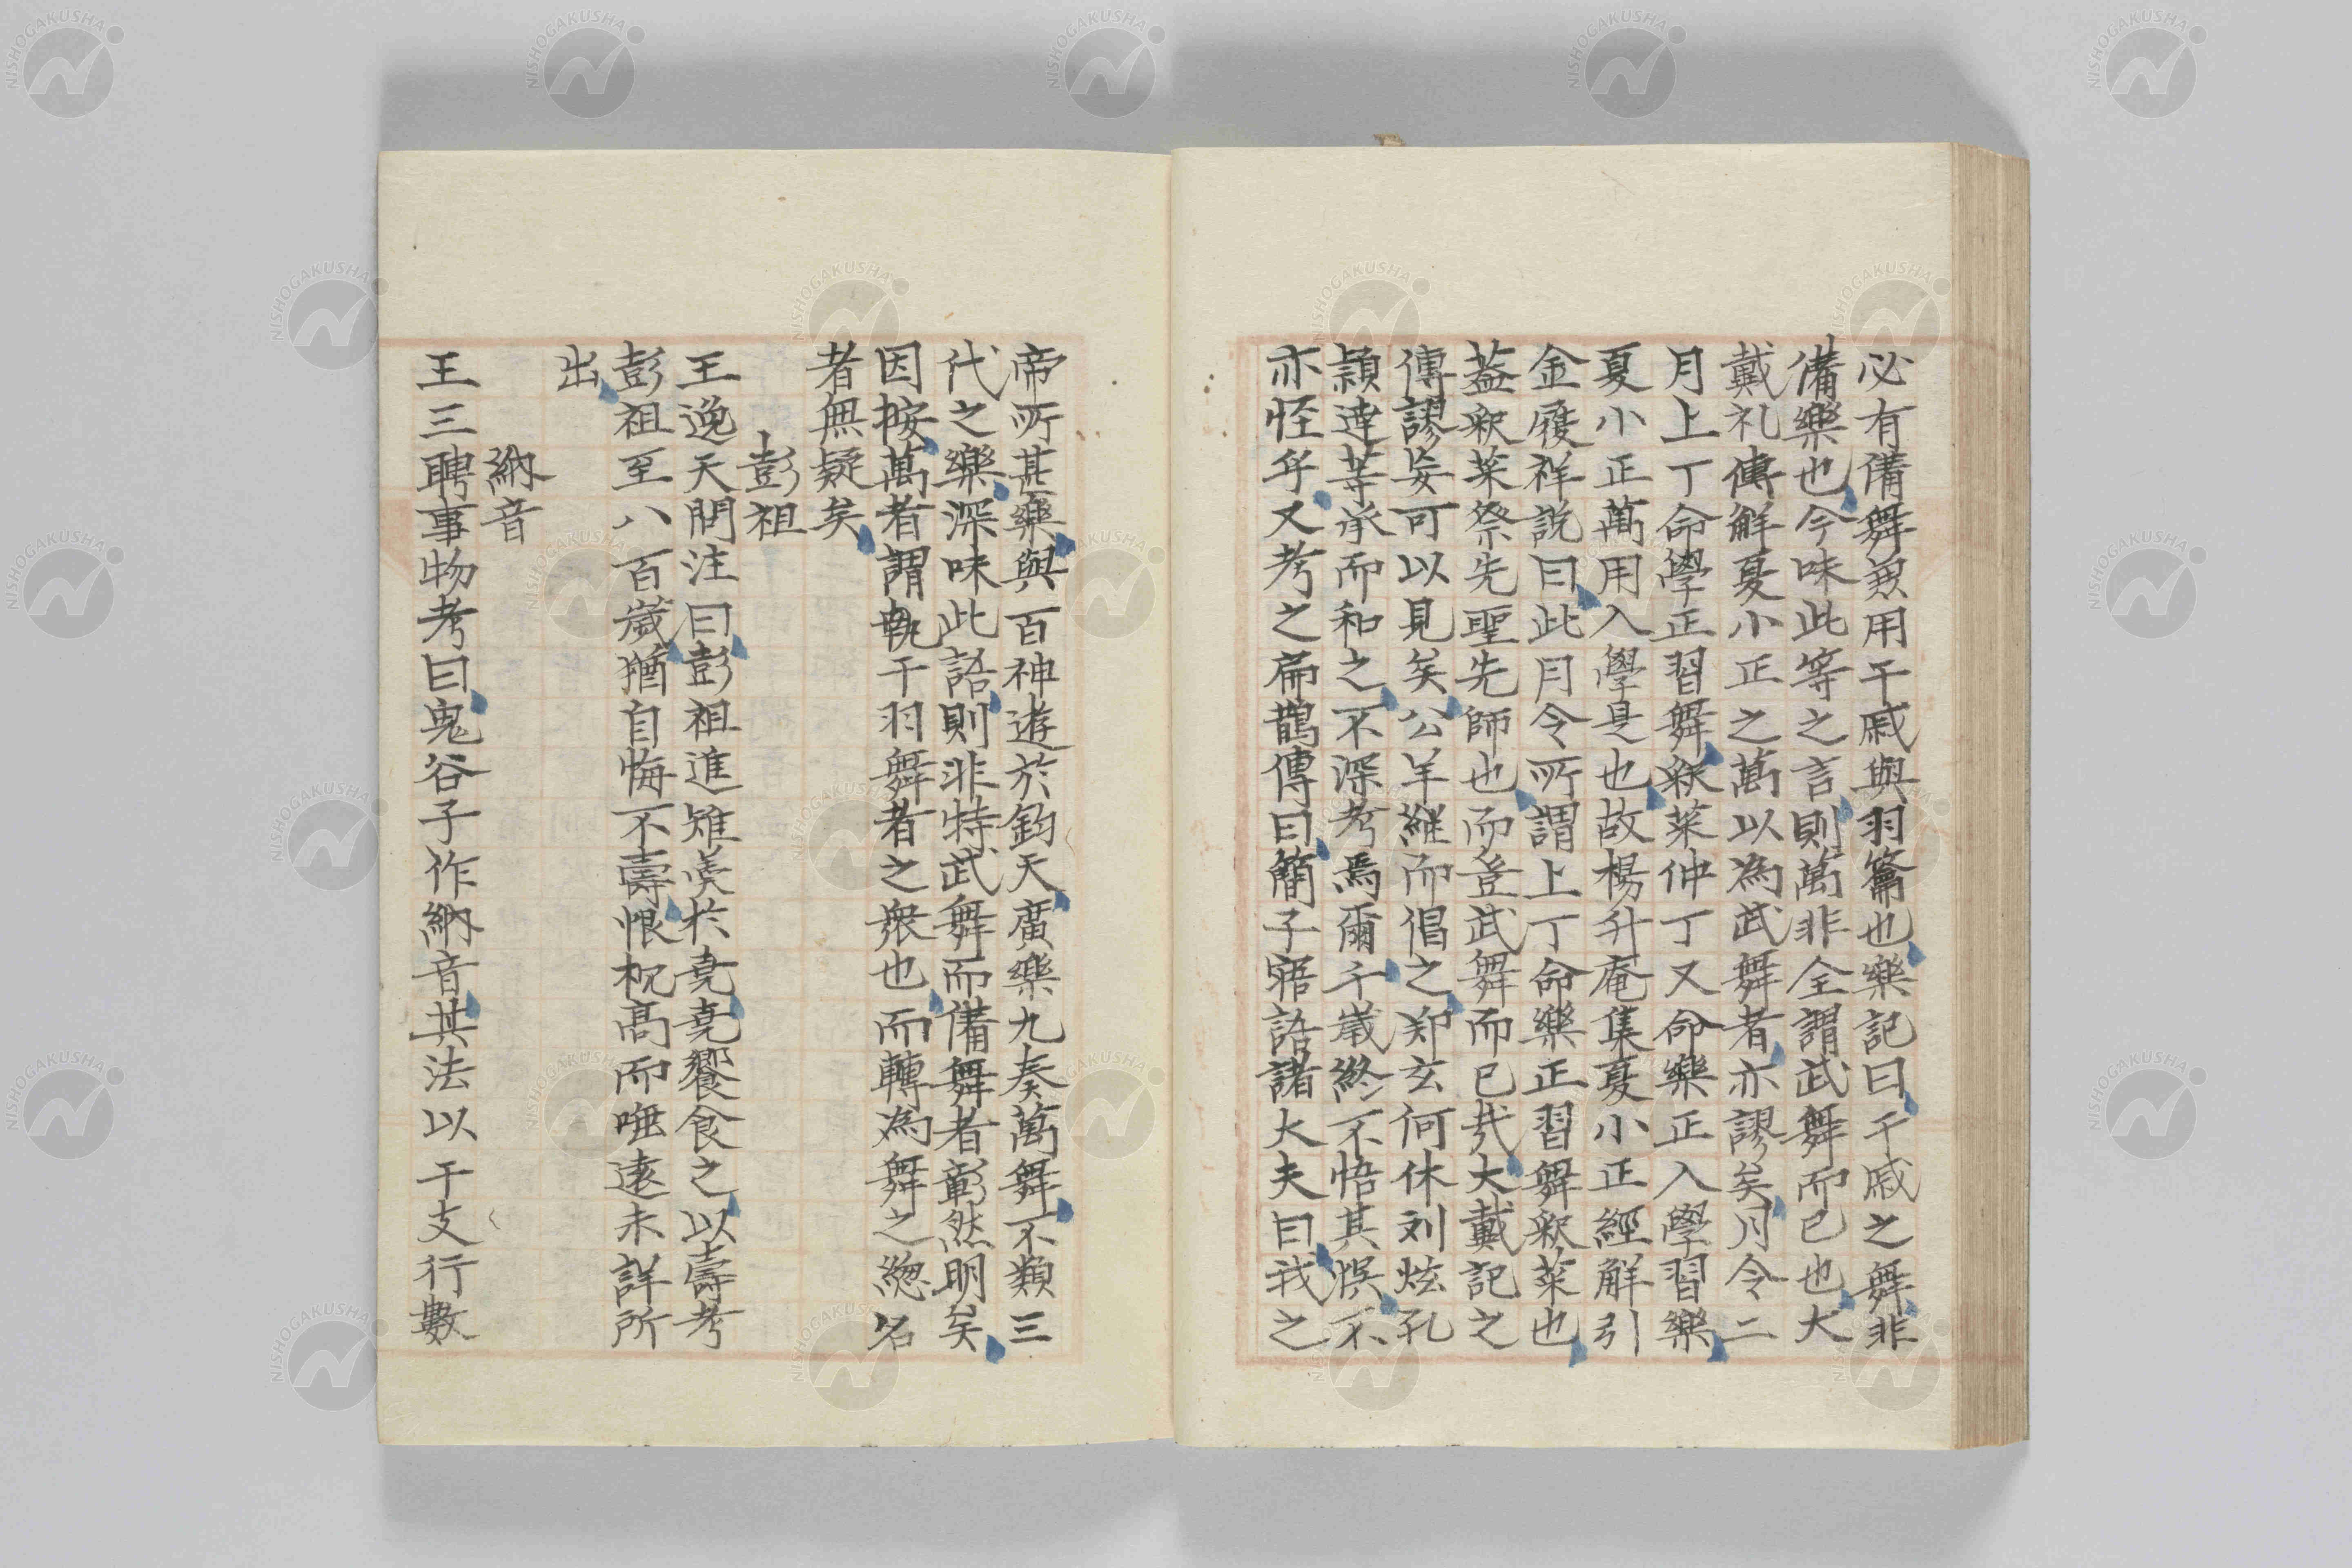 必有備舞兼用干戚與羽籥也樂記曰干戚之舞非
備樂也今味此等之言則萬非全謂武舞而已也大
戴礼傳解夏小正之萬以為武舞者亦謬矣月令二
月上丁命學正習舞釈菜仲丁又命樂正入學習樂
夏小正萬用入學是也故楊升庵集夏小正經解引
金履祥説曰此月令所謂上丁命樂正習舞釈菜也
蓋釈菜祭先聖先師也而豈武舞而已哉大戴記之
傳謬妄可以見矣公羊雖而倡之郑玄何休刘炫孔
頴達等承而和之不深考焉爾千歳終不悟其悞不
亦怪乎又考之扁鵲傳曰簡子寤語諸大夫曰我之
帝所甚樂與百神遊於鈞天廣樂九奏萬舞不類三
代之樂深味此語則非特武舞而備舞者彰然明矣
因按萬者謂執干羽舞者之衆也而轉為舞之總名
者無疑矣
彭祖
王逸天問注曰彭祖進雉羹於堯堯饗食之以壽考
彭祖至八百歳猶自悔不壽恨枕高而唾遠未詳所
出
納音
王三聘事物考曰鬼谷子作納音其法以干支行數
NISHOGAKUSHA